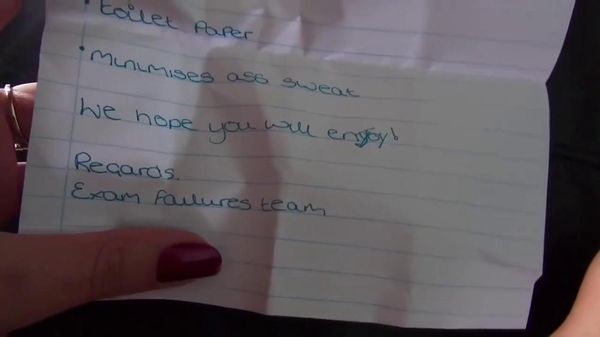 • toilet paper
• Minimises ass sweat
We hope you will enjoy!
Regards.
Exam failures team